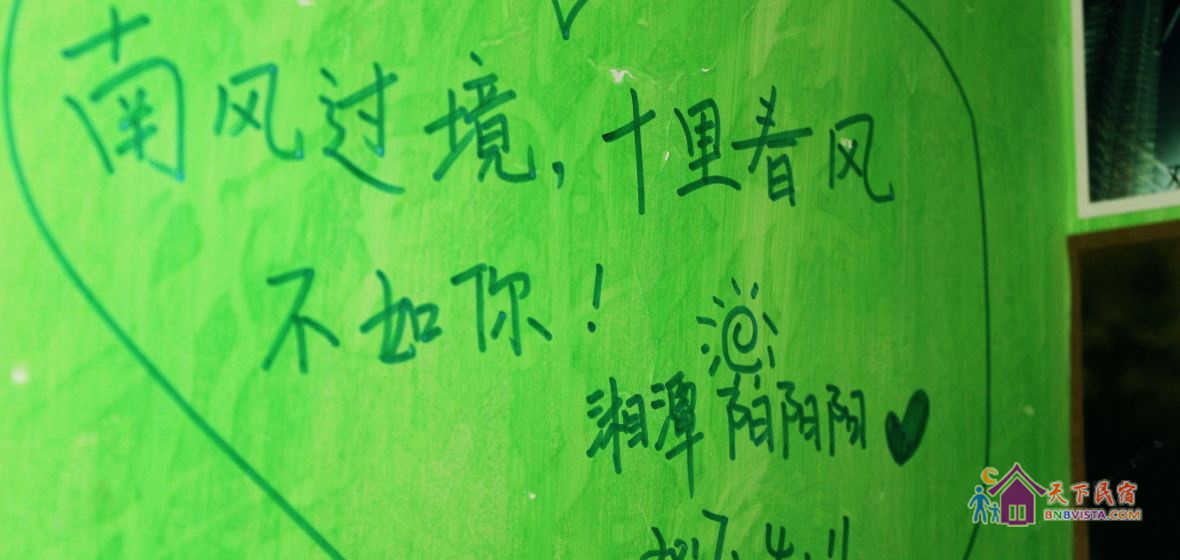 南风过境，十里春风
不如你！
湘潭 阳阳阳
2017.4.11
天下民宿
BNBVISTA.COM